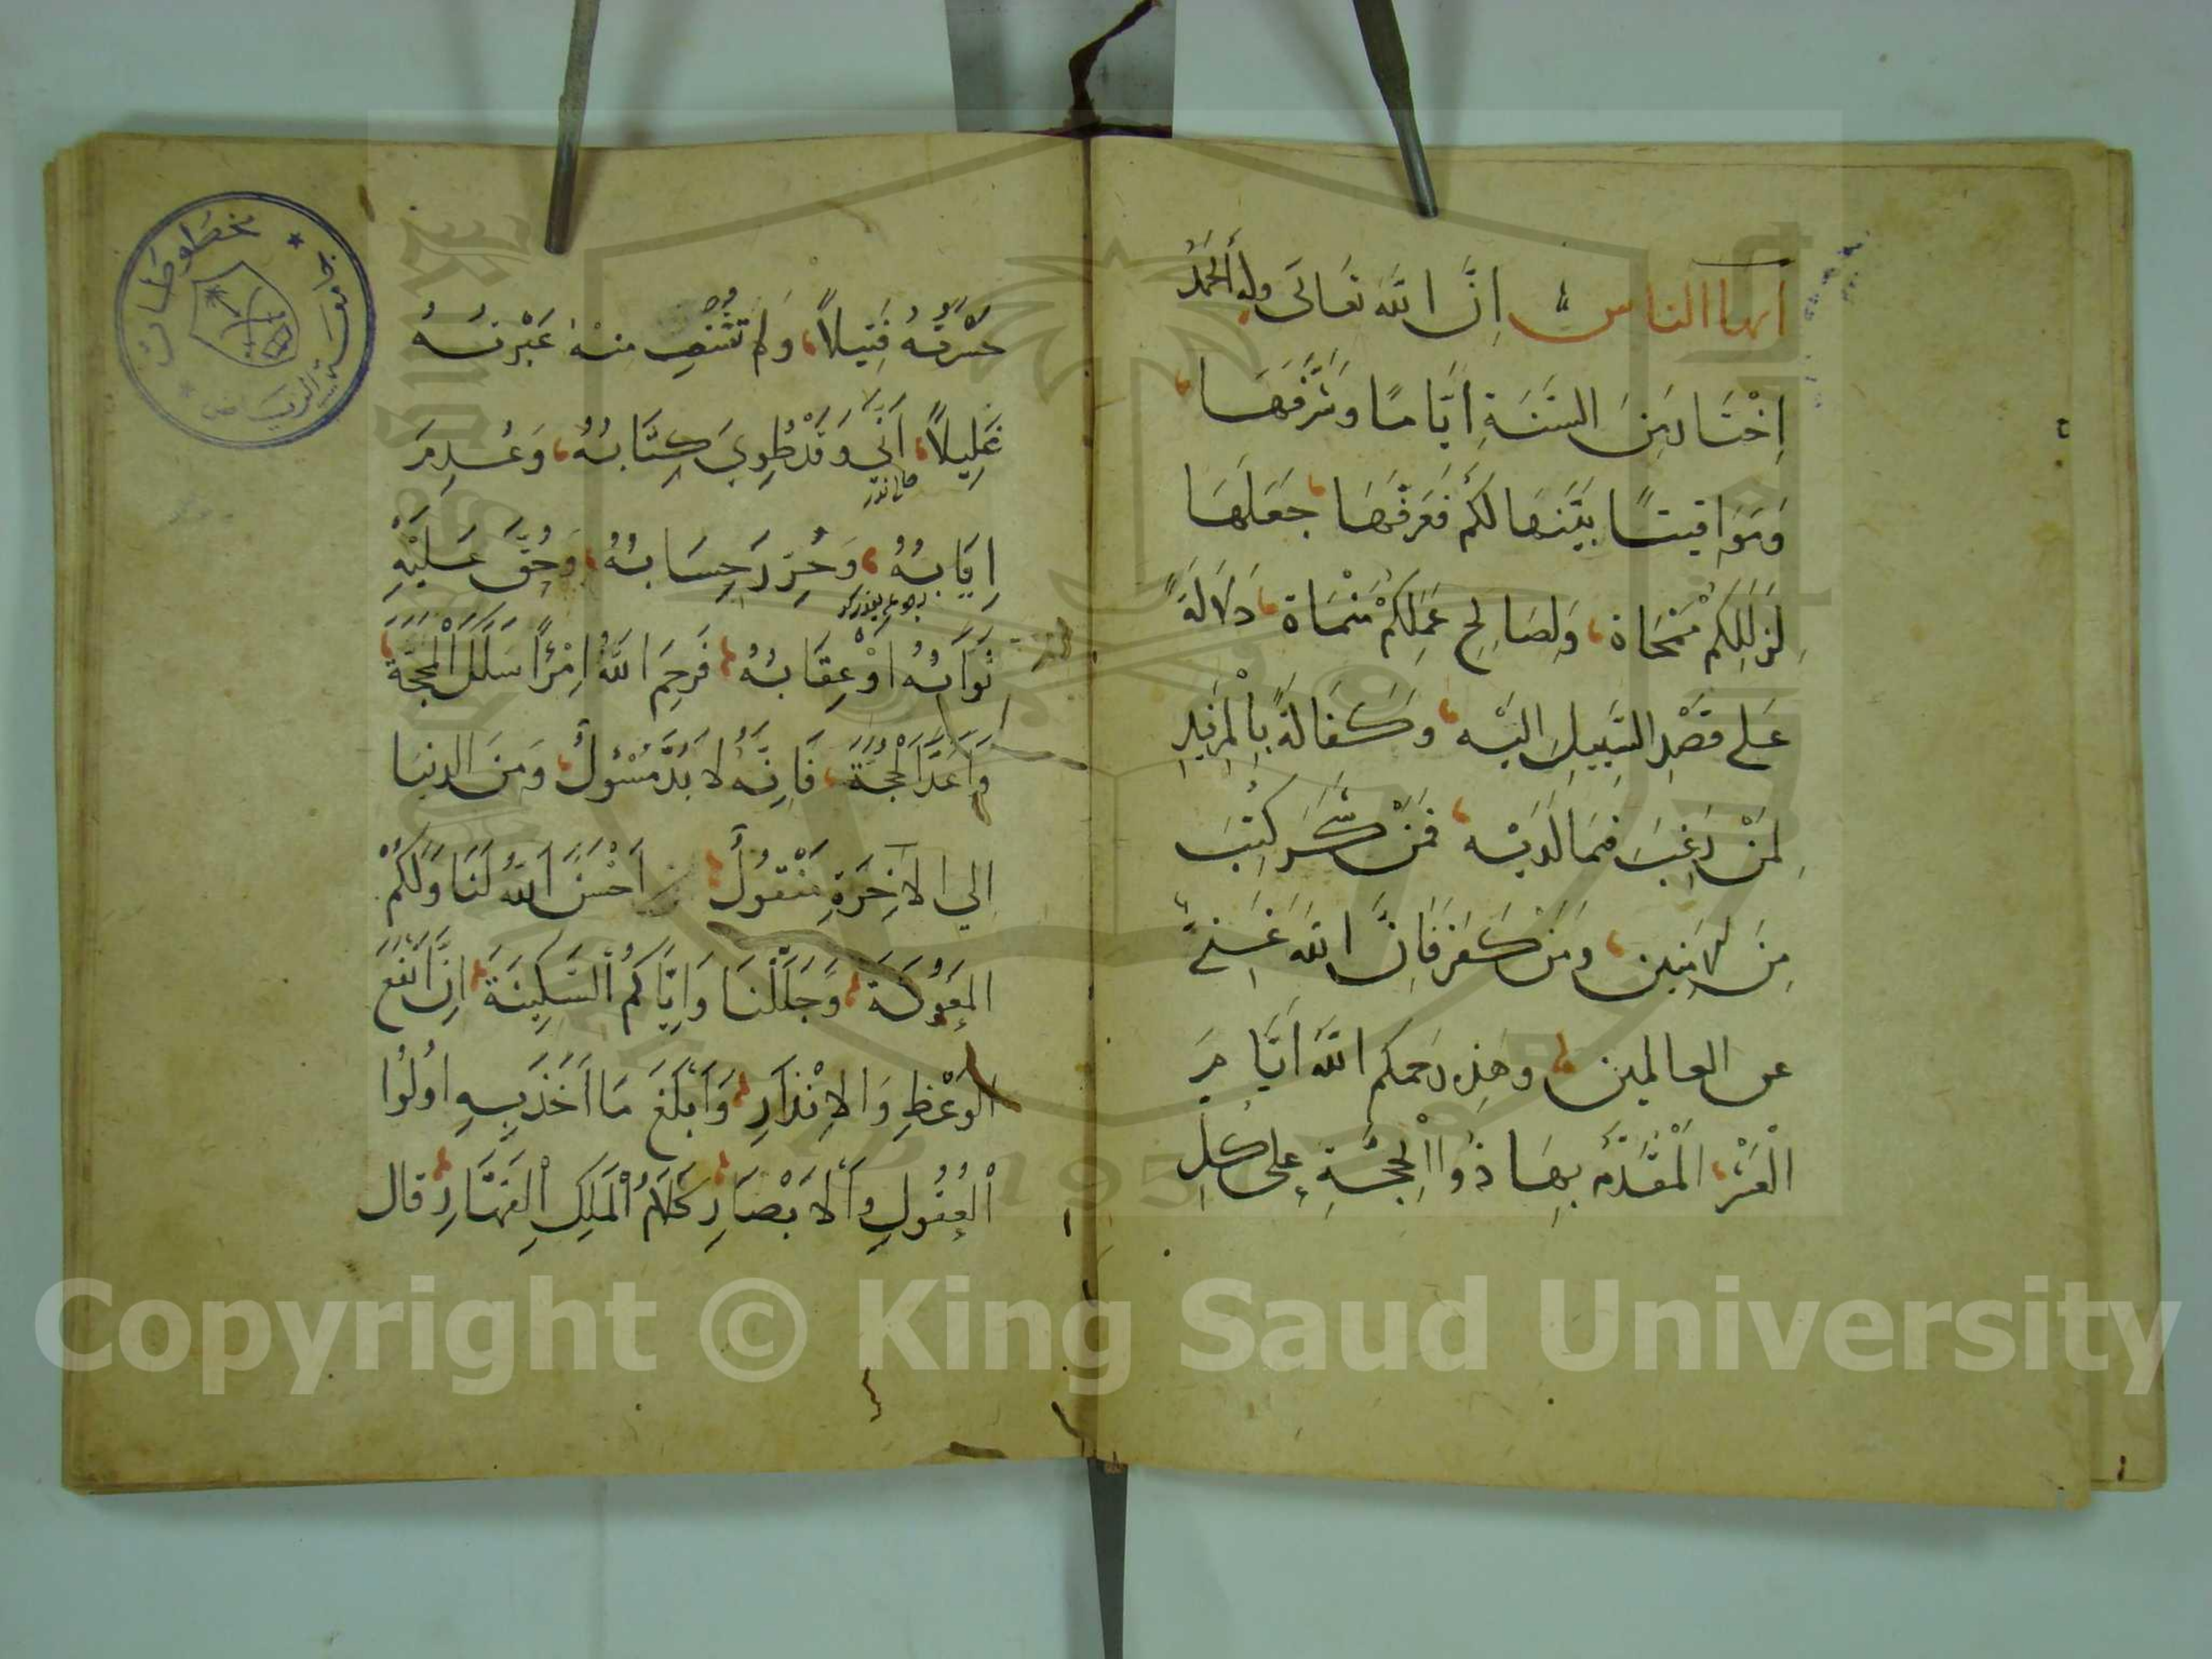 ايها الناس ان الله تعالى وله الحمد
اِخْتَارَ مِنَ السَّنَةِ اَيَّامًا وَشَرَّفَهَا
وَمَوَاقيتًا بَيَّنَهَا لَكُم فَعَرَّفَهَا جَعَلَهَا
لِزَلَلِكُمْ مَمْحَاة وَلِصَالِحِ عَمَلِكُمْ مَنْمَاة دَلَالَةً
عَلى قَصْدِ السَّبِيلِ اليْه وَكَفَالةً بِالْمَزِيدِ
لِمَنْ رَغِبَ فيمَا لَدَيْه فَمَنْ شَكَرَ كُتِبَ
مِنَ الامنين وَمَنْ كَفَرَ فَاِنَّ اللهَ غَنِيٌّ
عن العالمين وهَذِه رَحمكم اللهُ اَيَّامِ
الْعَشْرِ الْمقَدَّمِ بِهَا ذُو الْحِجَّةِ على كلِ
حَسْرَتُهُ فَتِيلاً وَلم تشْفِ منهُ عَبْرتهُ
غَلِيلاً اَنَّي وَقَدْ طُوِيَ كِتَابُهُ وَعُدِمَ
اِيَابُهُ وَحُرِّرَ حِسَابُهُ وَحُقَّ عَلَيْهِ
ثَوَابُهُ اَوْ عِقَابُهُ فَرَحِمَ اللهُ امْرَأً سَلَكَ الْمَحَجَّةَ
وَاَعَدَّ الْحُجَّةَ فَاِنَّهُ لَا بُدَّ مَسْئُولٌ وَمِنَ الدنيَا
اِلي الاَخِرَةِ مَنْقُولٌ اَحْسَنَ اللهُ لَنَا وَلَكُمْ
المَعُونَةَ وَجَلَّلَنَا وَاِيَّاكُمُ السَّكِينَةَ اِنَّ اَنْفَعَ
الْوَعْظِ وَالاِنْذَارِ وَاَبْلَغَ مَا اَخَذَ بِهِ اُولُوا
الْعُقُولِ وَالاَبْصَارِ كَلَامُ الْمَلِكِ الْقَهَّارِ قال
جامعة الرياض
مخطوطات
1957
Copyright © King Saud University